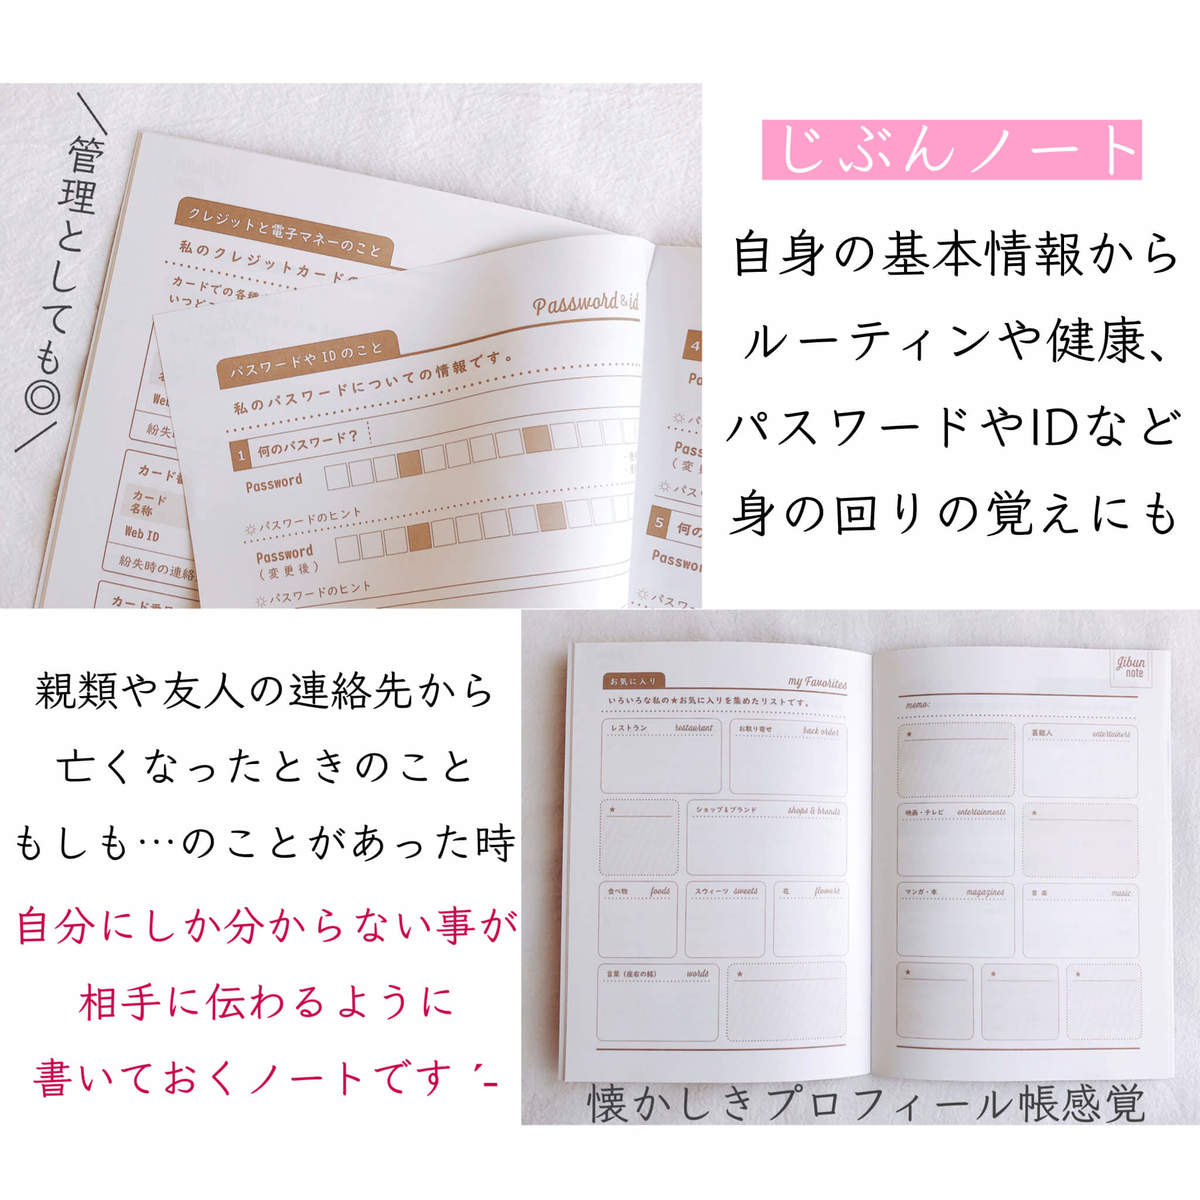 ＼管理としても◎／
クレジットと電子マネーのこと
私のクレジットカードの
カードでの各種
Web ID
カード
名称
Web ID
紛失時の連絡
Password & id
パスワードや ID のこと
私のパスワードについての情報です。
1 何のパスワード？
Password
パスワードのヒント
Password
（変更後）
パスワードのヒント
4
5 何の
Password
じぶんノート
自身の基本情報から
ルーティンや健康、
パスワードやIDなど
身の回りの覚えにも
親類や友人の連絡先から
亡くなったときのこと
もしも…のことがあった時
自分にしか分からない事が
相手に伝わるように
書いておくノートです ˊ˗
お気に入り
my Favorites
いろいろな私の★お気に入りを集めたリストです。
レストラン restaurant
お取り寄せ back order
★
ショップ＆ブランド shops & brands
食べ物 foods
スウィーツ sweets
花 flowers
言葉（座右の銘） words
★
Jibun
note
memo:
★
芸能人 entertainers
映画・テレビ entertainments
★
マンガ・本 magazines
音楽 music
★
★
★
懐かしきプロフィール帳感覚